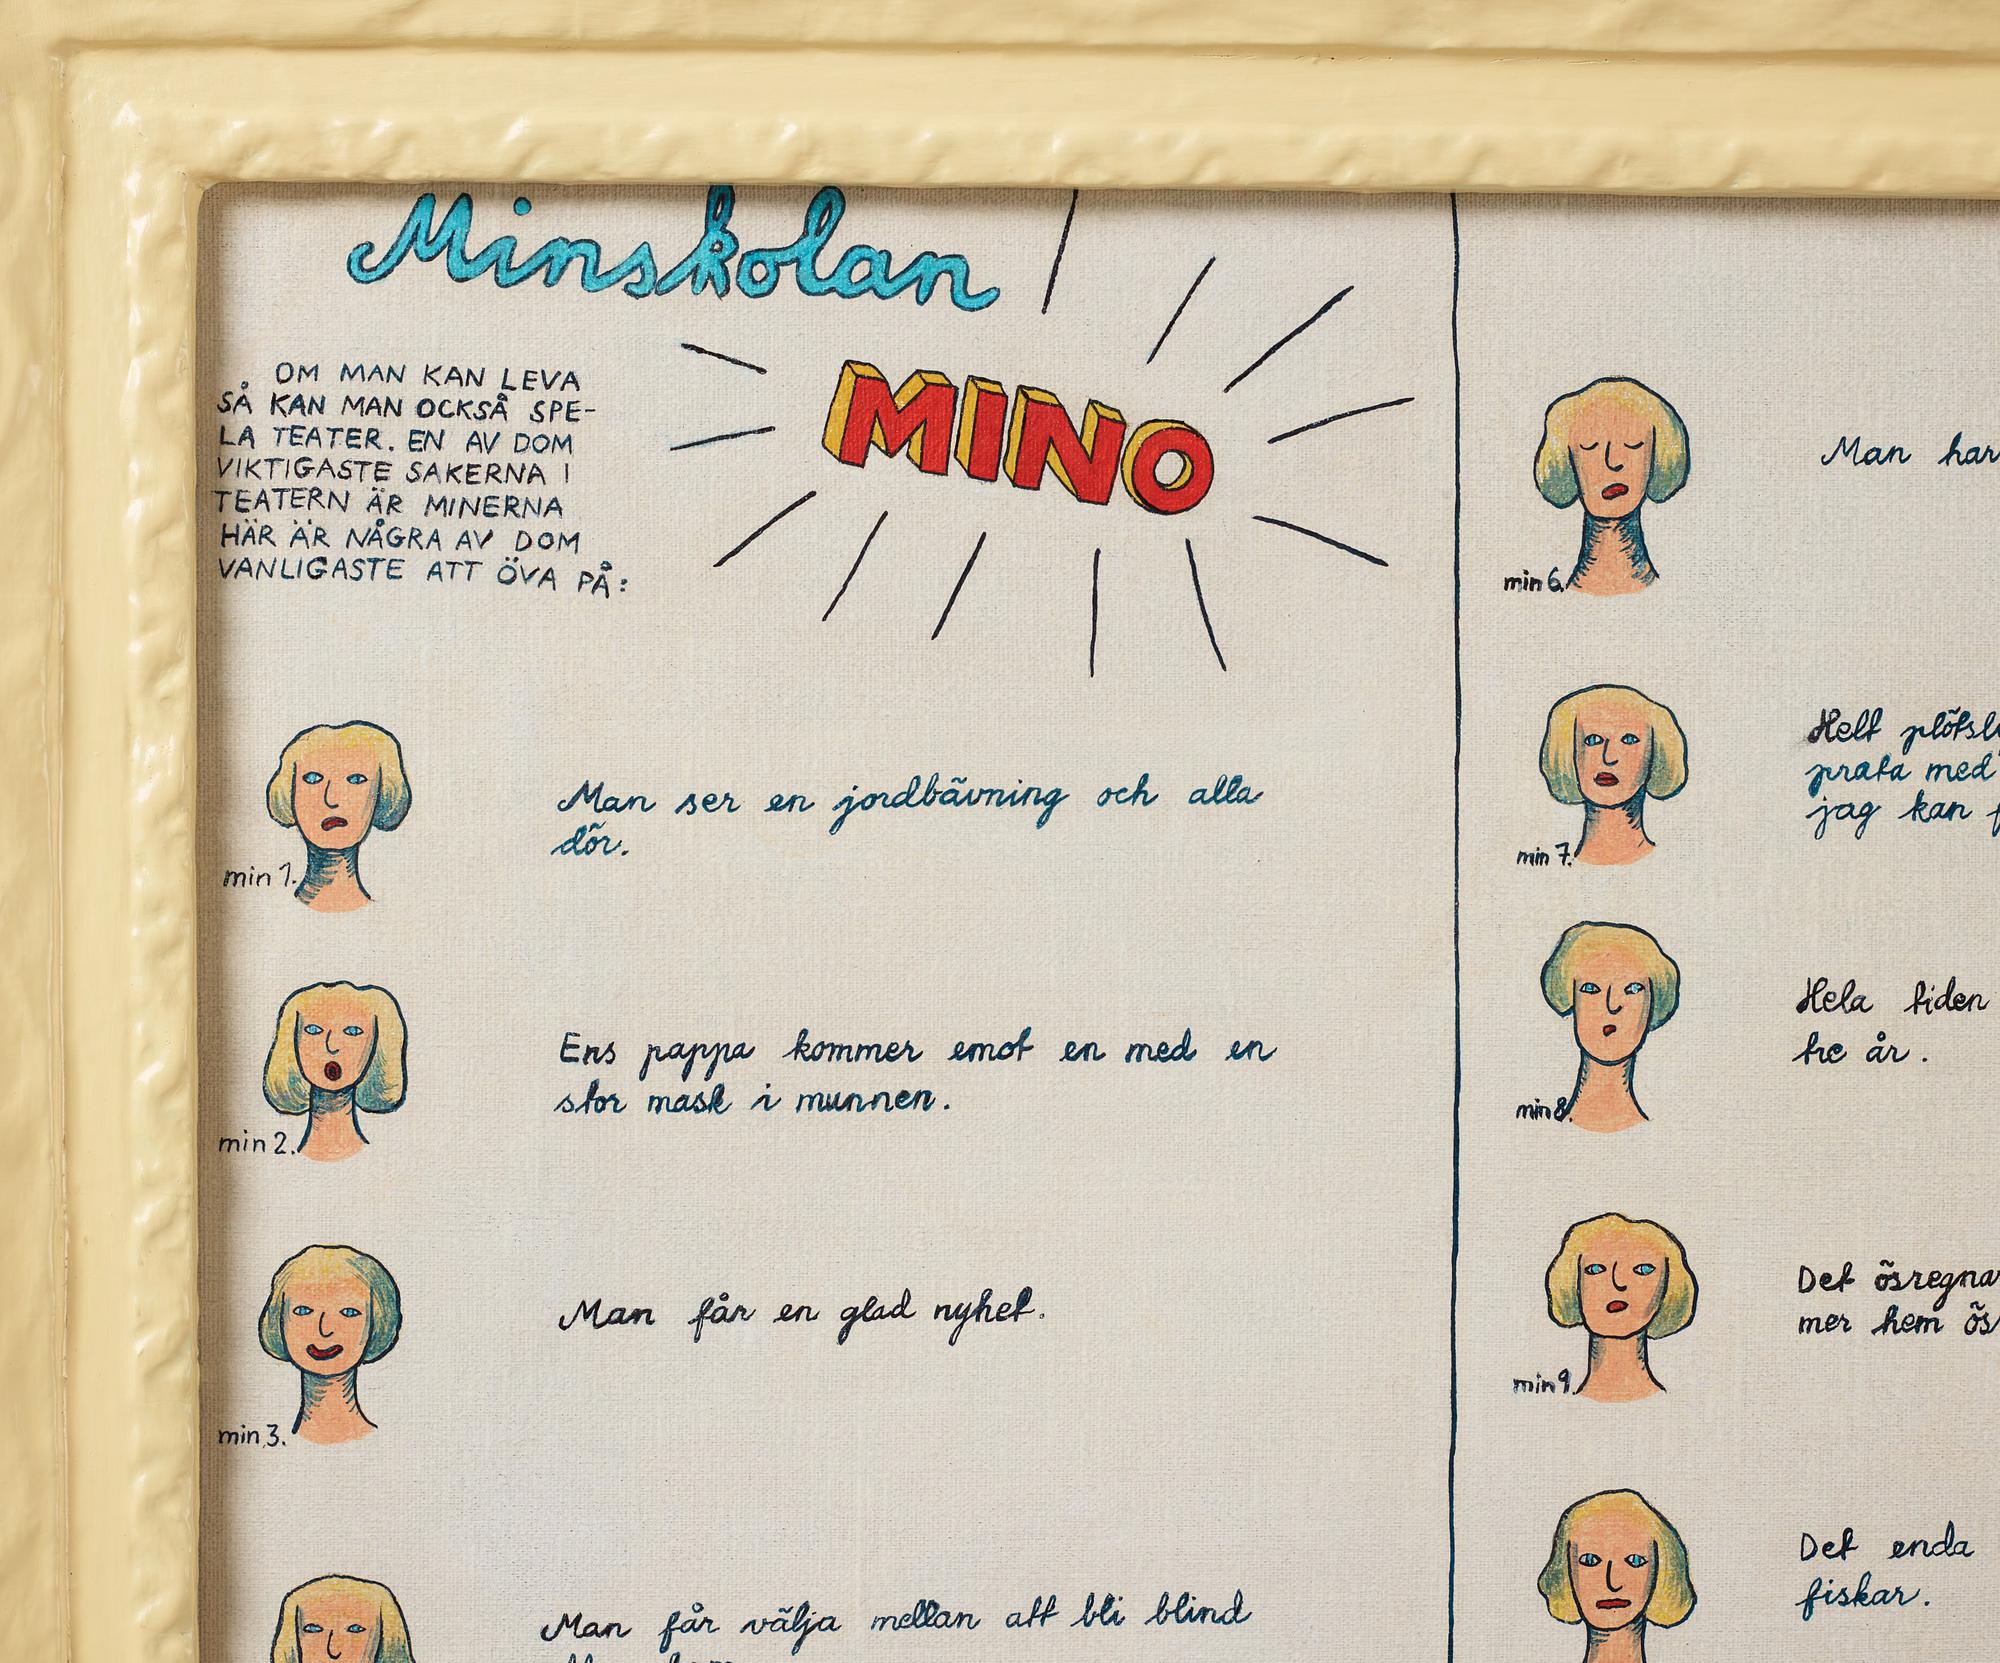 Minskolan
MINO
OM MAN KAN LEVA
SÅ KAN MAN OCKSÅ SPE-
LA TEATER. EN AV DOM
VIKTIGASTE SAKERNA I
TEATERN ÄR MINERNA
HÄR ÄR NÅGRA AV DOM
VANLIGASTE ATT ÖVA PÅ:
min 1.
Man ser en jordbävning och alla
dör.
min 2.
Ens pappa kommer emot en med en
stor mask i munnen.
min 3.
Man får en glad nyhet.
Man får välja mellan att bli blind
min 6.
Man har
min 7.
Helt
prata med
jag kan
min 8.
Hela tiden
tre år.
min 9.
Det
mer hem
Det enda
fiskar.